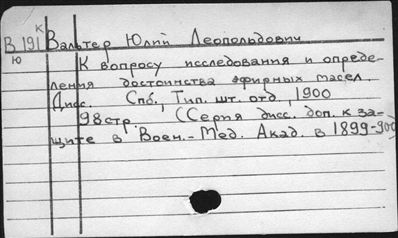 В 191 к Вальтер Юлий Леопольдович
ю К вопросу исследования и опреде-
ления достоинства эфирных масел.
Дисс. Спб., Тип. шт. отд., 1900
98стр. (Серия дисс. доп. к за-
щите в Воен.-Мед. Акад. в 1899-900